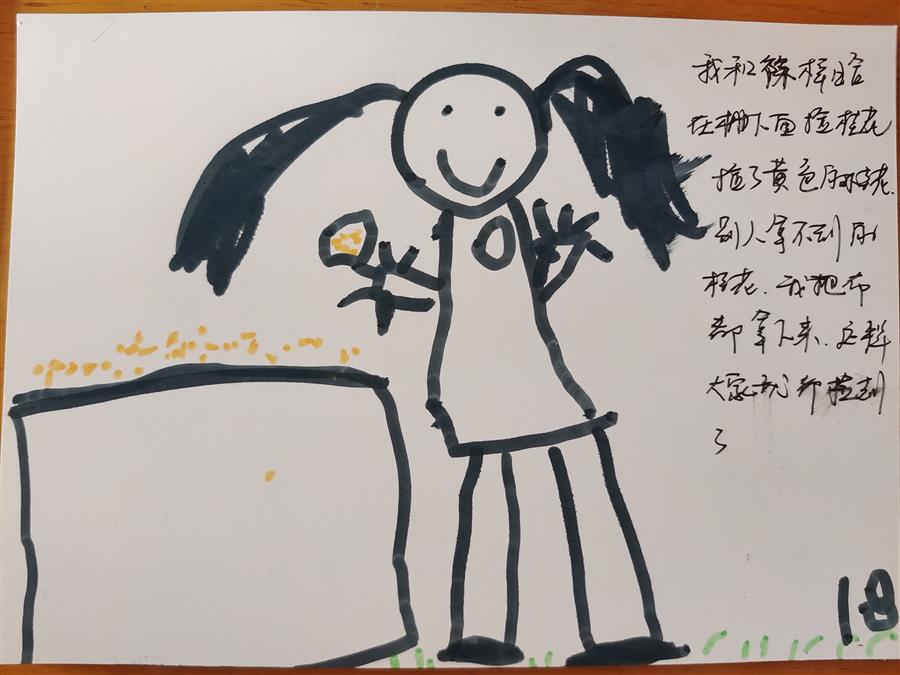 我和徐梓晗
在棚下面捡桂花
捡了黄色的桂花.
别人拿不到的
桂花.我把布
都拿下来.这样
大家就都捡到
了
18